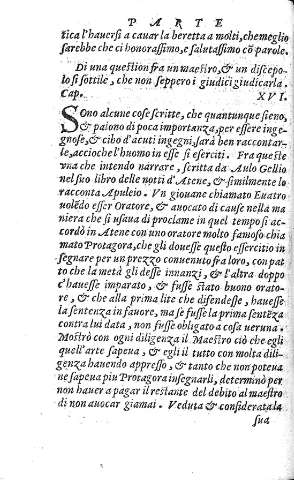 PARTE
tica l'hauersi a cauar la beretta a molti, che meglio
sarebbe che ci honorassimo, e salutassimo cō parole.
Di una question fra un maestro, & un discepo-
lo si sottile, che non seppero i giudici giudicarla.
Cap. XVI.
SOno alcune cose scritte, che quantunque sieno,
& paiono di poca importanza, per essere inge-
gnose, & cibo d'acuti ingegni, sarà ben raccontar-
le, accioche l'huomo in esse si eserciti. Fra queste
una che intendo narrare, scritta da Aulo Gellio
nel suo libro delle notti d'Atene, & similmente lo
racconta Apuleio. Vn giouane chiamato Euatro
uolēdo esser Oratore, & auocato di cause nella ma
niera che si usaua di proclame in quel tempo, si ac-
cordò in Atene con uno oratore molto famoso chia
mato Protagora, che gli douesse questo essercitio in
segnare per un prezzo conuenuto fra loro, con pat
to che la metà gli desse innanzi, & l'altra doppo
c'hauesse imparato, & fusse stato buono orato-
re, & che alla prima lite che difendesse, hauesse
la sentenza in fauore, ma se fusse la prima sentēza
contra lui data, non fusse obligato a cosa ueruna.
Mostrò con ogni diligenza il Maestro ciò che egli
quell'arte sapeua, & egli il tutto con molta dili-
genza hauendo appresso, & tanto che non poteua
ne sapeua piu Protagora insegnarli, determinò per
non hauer a pagar il restante del debito al maestro
di non auocar giamai. Veduta & considerata la
sua